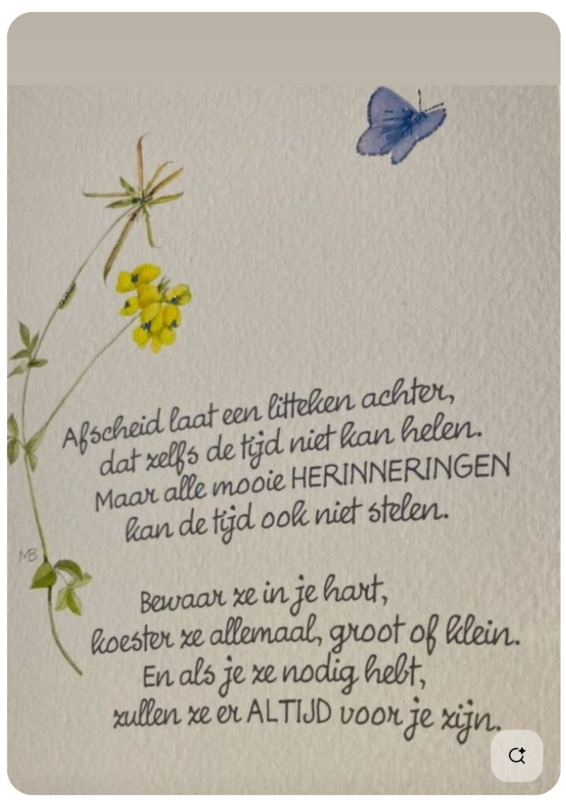 Afscheid laat een litteken achter,
dat zelfs de tijd niet kan helen.
Maar alle mooie HERINNERINGEN
kan de tijd ook niet stelen.
MB
Bewaar ze in je hart,
koester ze allemaal, groot of klein.
En als je ze nodig hebt,
zullen ze er ALTIJD voor je zijn.